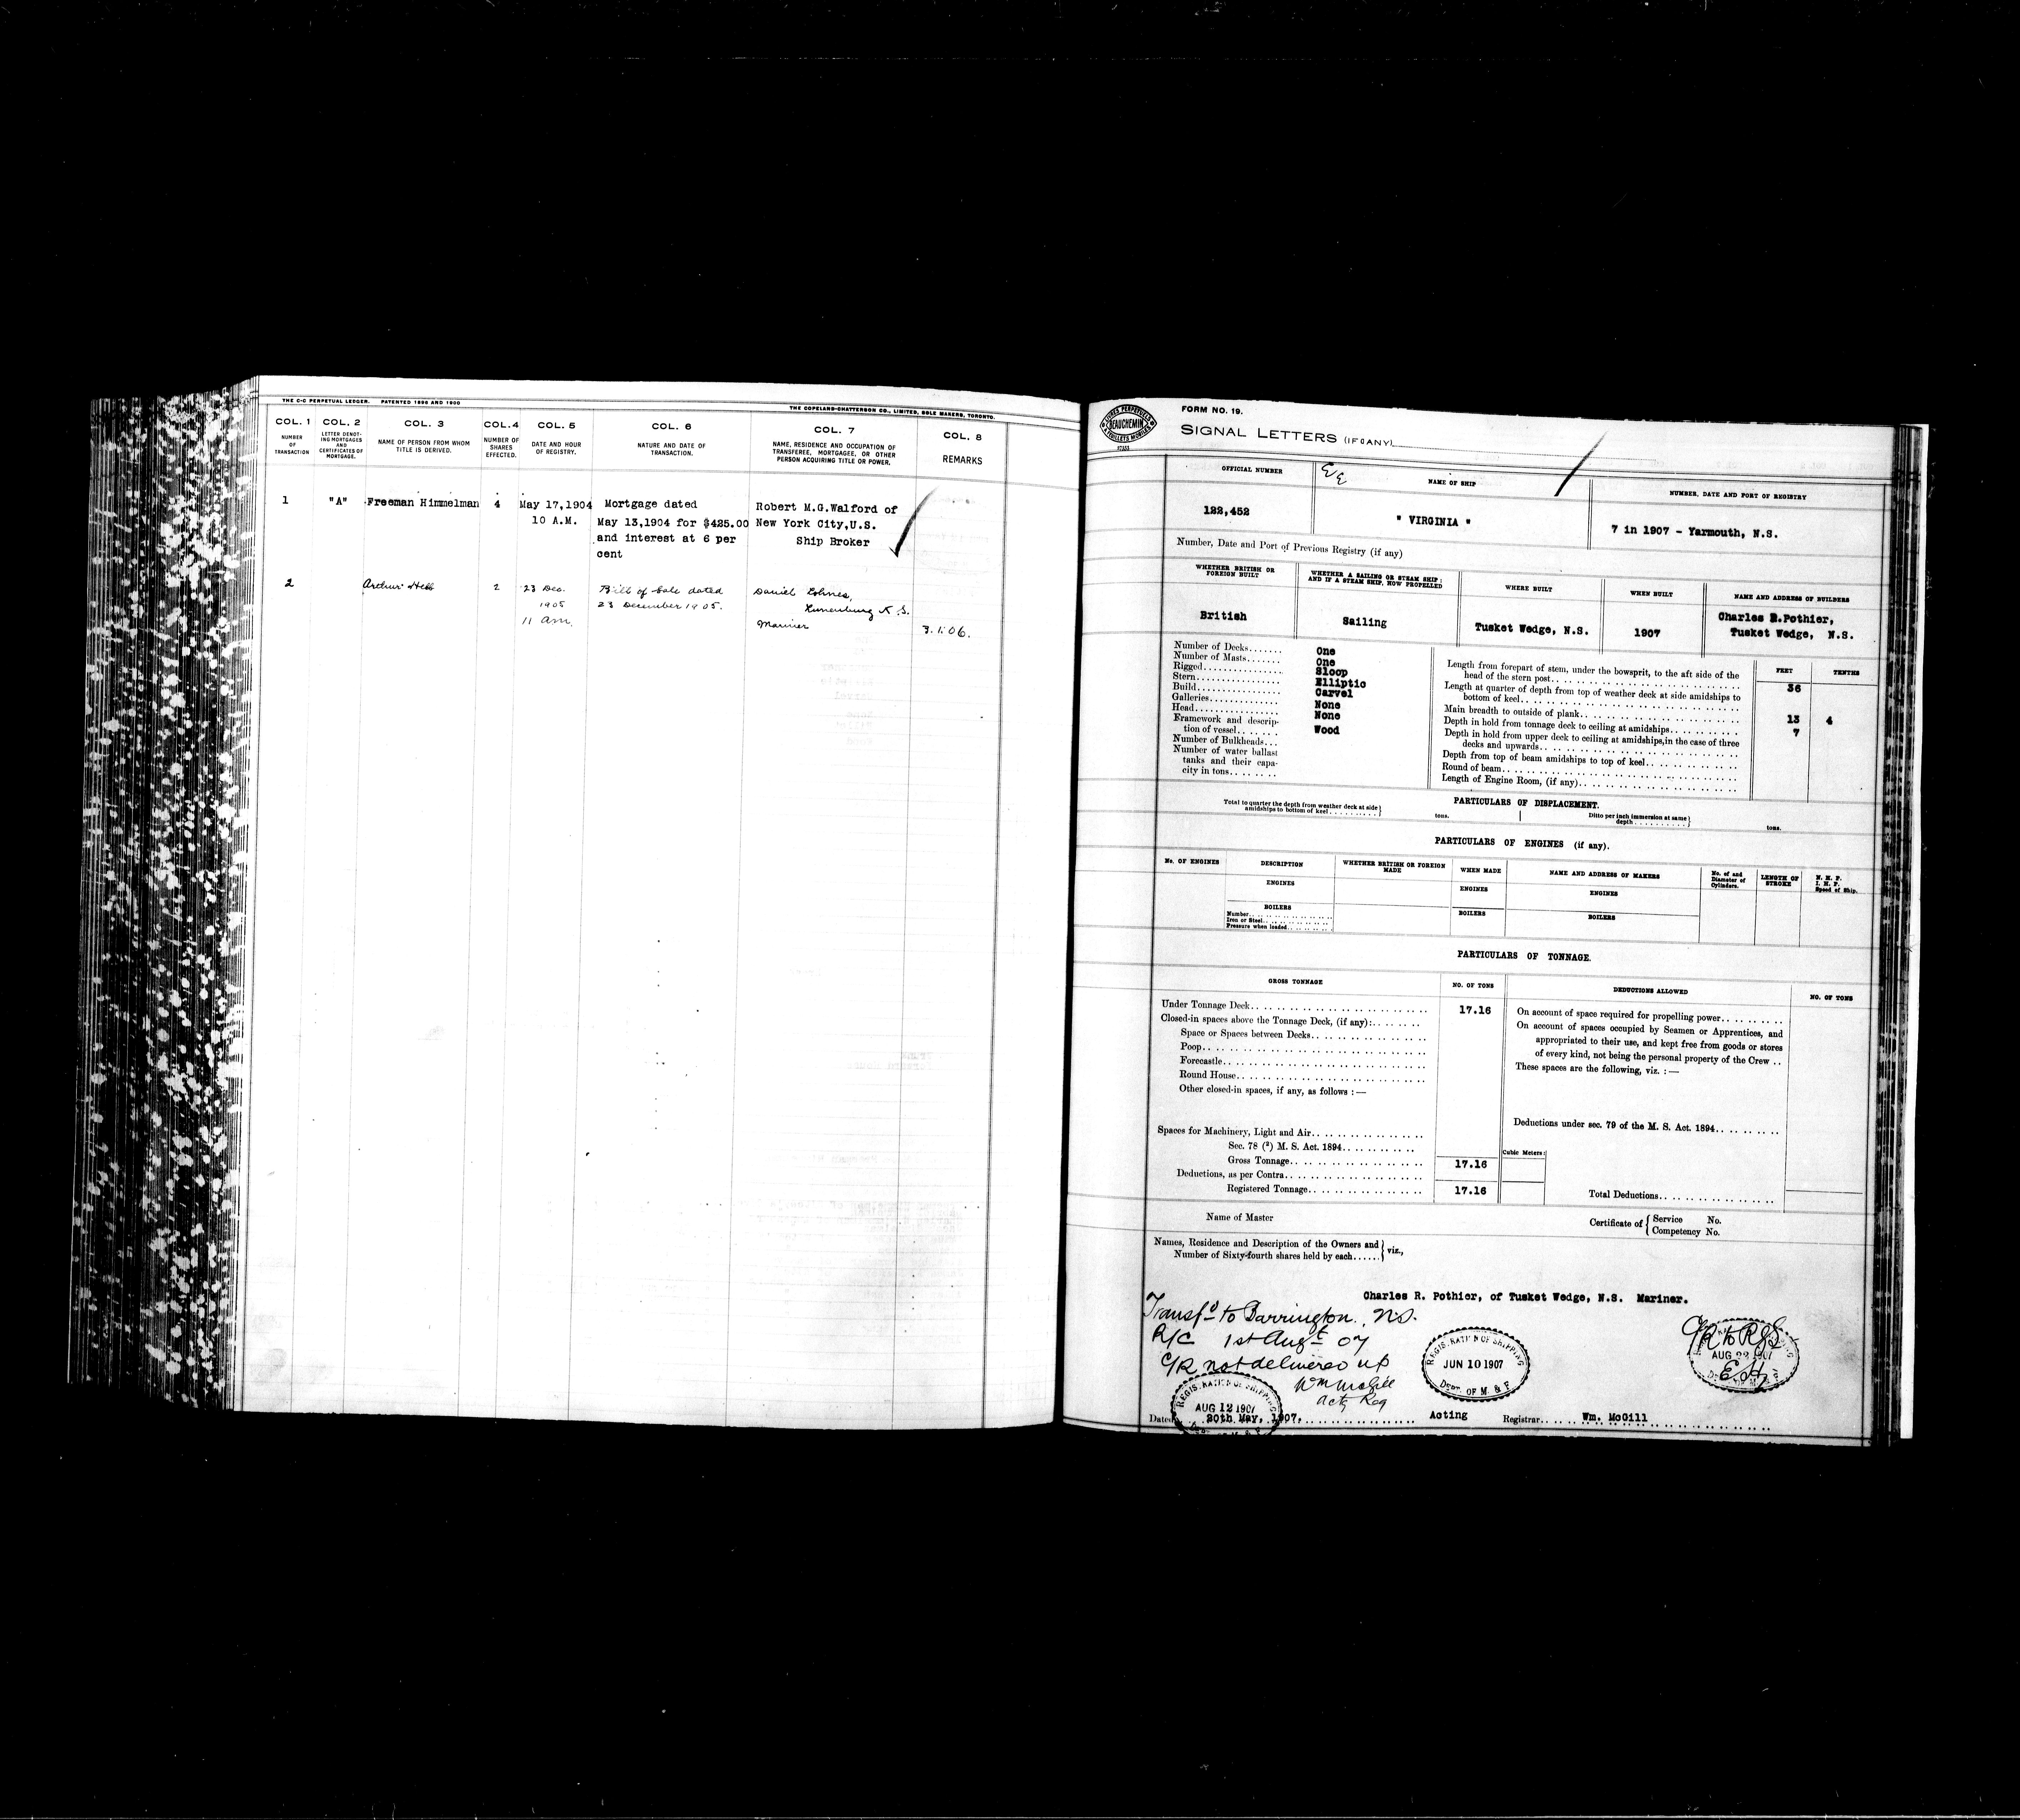 THE C-C PERPETUAL LEDGER. PATENTED 1896 AND 1900
THE COPELAND-CHATTERSON CO., LIMITED, SOLE MAKERS, TORONTO.
COL. 1 COL. 2 COL. 3 COL. 4 COL. 5 COL. 6 COL. 7 COL. 8
NUMBER OF TRANSACTION
LETTER DENOTING MORTGAGES AND CERTIFICATES OF MORTGAGE.
NAME OF PERSON FROM WHOM TITLE IS DERIVED.
NUMBER OF SHARES EFFECTED.
DATE AND HOUR OF REGISTRY.
NATURE AND DATE OF TRANSACTION.
NAME, RESIDENCE AND OCCUPATION OF TRANSFEREE, MORTGAGEE, OR OTHER PERSON ACQUIRING TITLE OR POWER.
REMARKS
1 "A" Freeman Himmelman 4 May 17,1904 Mortgage dated Robert M.G.Walford of
10 A.M. May 13,1904 for $425.00 New York City,U.S.
and interest at 6 per Ship Broker
cent
2 Arthur Hebb 2 23 Dec. Bill of Sale dated Daniel Lohnes,
1905 23 December 1905. Lunenburg N.S.
11 am. Mariner 3.1.06.
BEAUCHEMIN
FORM NO. 19.
SIGNAL LETTERS (IF ANY)
OFFICIAL NUMBER NAME OF SHIP NUMBER, DATE AND PORT OF REGISTRY
122,452 " VIRGINIA " 7 in 1907 - Yarmouth, N.S.
Number, Date and Port of Previous Registry (if any)
WHETHER BRITISH OR FOREIGN BUILT
WHETHER A SAILING OR STEAM SHIP; AND IF A STEAM SHIP, HOW PROPELLED
WHERE BUILT
WHEN BUILT
NAME AND ADDRESS OF BUILDERS
British Sailing Tusket Wedge, N.S. 1907 Charles R.Pothier,
Tusket Wedge, N.S.
Number of Decks....... One
Number of Masts....... One
Rigged............... Sloop
Stern................. Elliptic
Build................. Carvel
Galleries............. None
Head................. None
Framework and descrip-
tion of vessel....... Wood
Number of Bulkheads...
Number of water ballast
tanks and their capa-
city in tons........
FEET TENTHS
Length from forepart of stem, under the bowsprit, to the aft side of the
head of the stern post 36
Length at quarter of depth from top of weather deck at side amidships to
bottom of keel
Main breadth to outside of plank 13 4
Depth in hold from tonnage deck to ceiling at amidships 7
Depth in hold from upper deck to ceiling at amidships,in the case of three
decks and upwards
Depth from top of beam amidships to top of keel
Round of beam
Length of Engine Room, (if any)
PARTICULARS OF DISPLACEMENT.
Total to quarter the depth from weather deck at side
amidships to bottom of keel tons.
Ditto per inch immersion at same
depth tons.
PARTICULARS OF ENGINES (if any).
No. OF ENGINES DESCRIPTION WHETHER BRITISH OR FOREIGN MADE WHEN MADE NAME AND ADDRESS OF MAKERS No. of and Diameter of Cylinders. LENGTH OF STROKE N. H. P. I. H. P. Speed of Ship.
ENGINES ENGINES ENGINES
BOILERS BOILERS BOILERS
Number
Iron or Steel
Pressure when loaded
PARTICULARS OF TONNAGE.
GROSS TONNAGE NO. OF TONS DEDUCTIONS ALLOWED NO. OF TONS
Under Tonnage Deck 17.16
Closed-in spaces above the Tonnage Deck, (if any):
Space or Spaces between Decks
Poop
Forecastle
Round House
Other closed-in spaces, if any, as follows :—
On account of space required for propelling power
On account of spaces occupied by Seamen or Apprentices, and
appropriated to their use, and kept free from goods or stores
of every kind, not being the personal property of the Crew
These spaces are the following, viz. :—
Spaces for Machinery, Light and Air
Sec. 78 (²) M. S. Act. 1894
Gross Tonnage 17.16
Deductions, as per Contra
Registered Tonnage 17.16
Deductions under sec. 79 of the M. S. Act. 1894
Cubic Meters:
Total Deductions
Name of Master
Certificate of Service No.
Competency No.
Names, Residence and Description of the Owners and
Number of Sixty-fourth shares held by each...... viz.,
Charles R. Pothier, of Tusket Wedge, N.S. Mariner.
Transfd to Barrington, N.S.
R/C 1st Augt 07
C/R not delivered up
Wm McGill
Actg Reg
REGISTRATION OF SHIPPING
JUN 10 1907
DEPT. OF M. & F.
C/R to RGS
AUG 22 1907
REGISTRATION OF SHIPPING
AUG 12 1907
Dated 20th May, 1907. Acting Registrar Wm. McGill